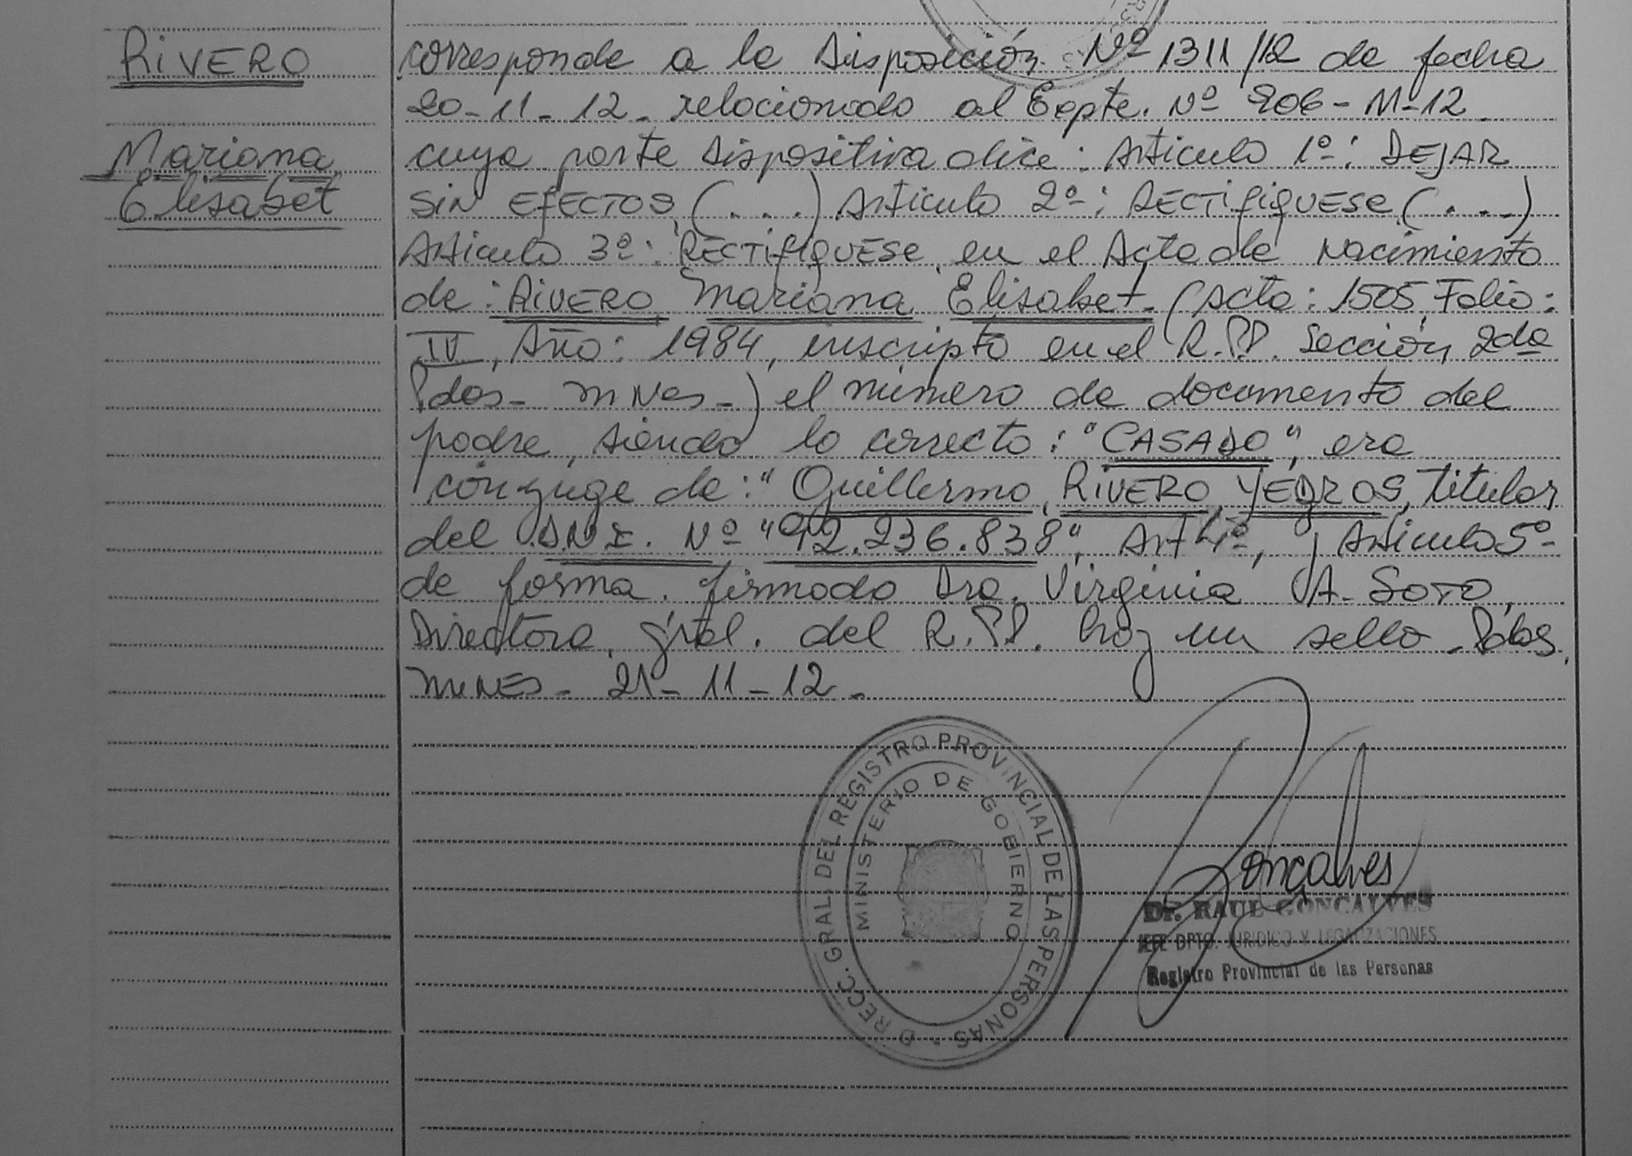 RIVERO
Mariana
Elisabet
corresponde a la Disposición Nº 1311/12 de fecha
20-11-12. relacionado al Expte. Nº 206-M-12.
cuya parte dispositiva dice: Artículo 1º: DEJAR
SIN EFECTOS (...) Artículo 2º: RECTIFIQUESE (...)
Artículo 3º: RECTIFIQUESE, en el Acta de Nacimiento
de: RIVERO, Mariana Elisabet. (Acta: 1505, Folio:
IV, Año: 1984, inscripto en el R.P.P. Sección, 2da
Pdas- MNes-) el número de documento del
padre, siendo lo correcto: "CASADO", era
cónyuge de: "Guillermo, RIVERO YEGROS, titular
del D.N.I. Nº "92.236.838", Art 4º, y Artículo 5º
de forma. firmado Dra. Virginia A. SOTO,
Directora, Gral. del R.P.P. hay un sello. Pdas,
MNES- 21-11-12.
DIRECC. GRAL. DEL REGISTRO PROVINCIAL DE LAS PERSONAS
MINISTERIO DE GOBIERNO
Gonçalves
Dr. RAUL GONCALVES
JEFE DPTO. JURIDICO Y LEGALIZACIONES
Registro Provincial de las Personas